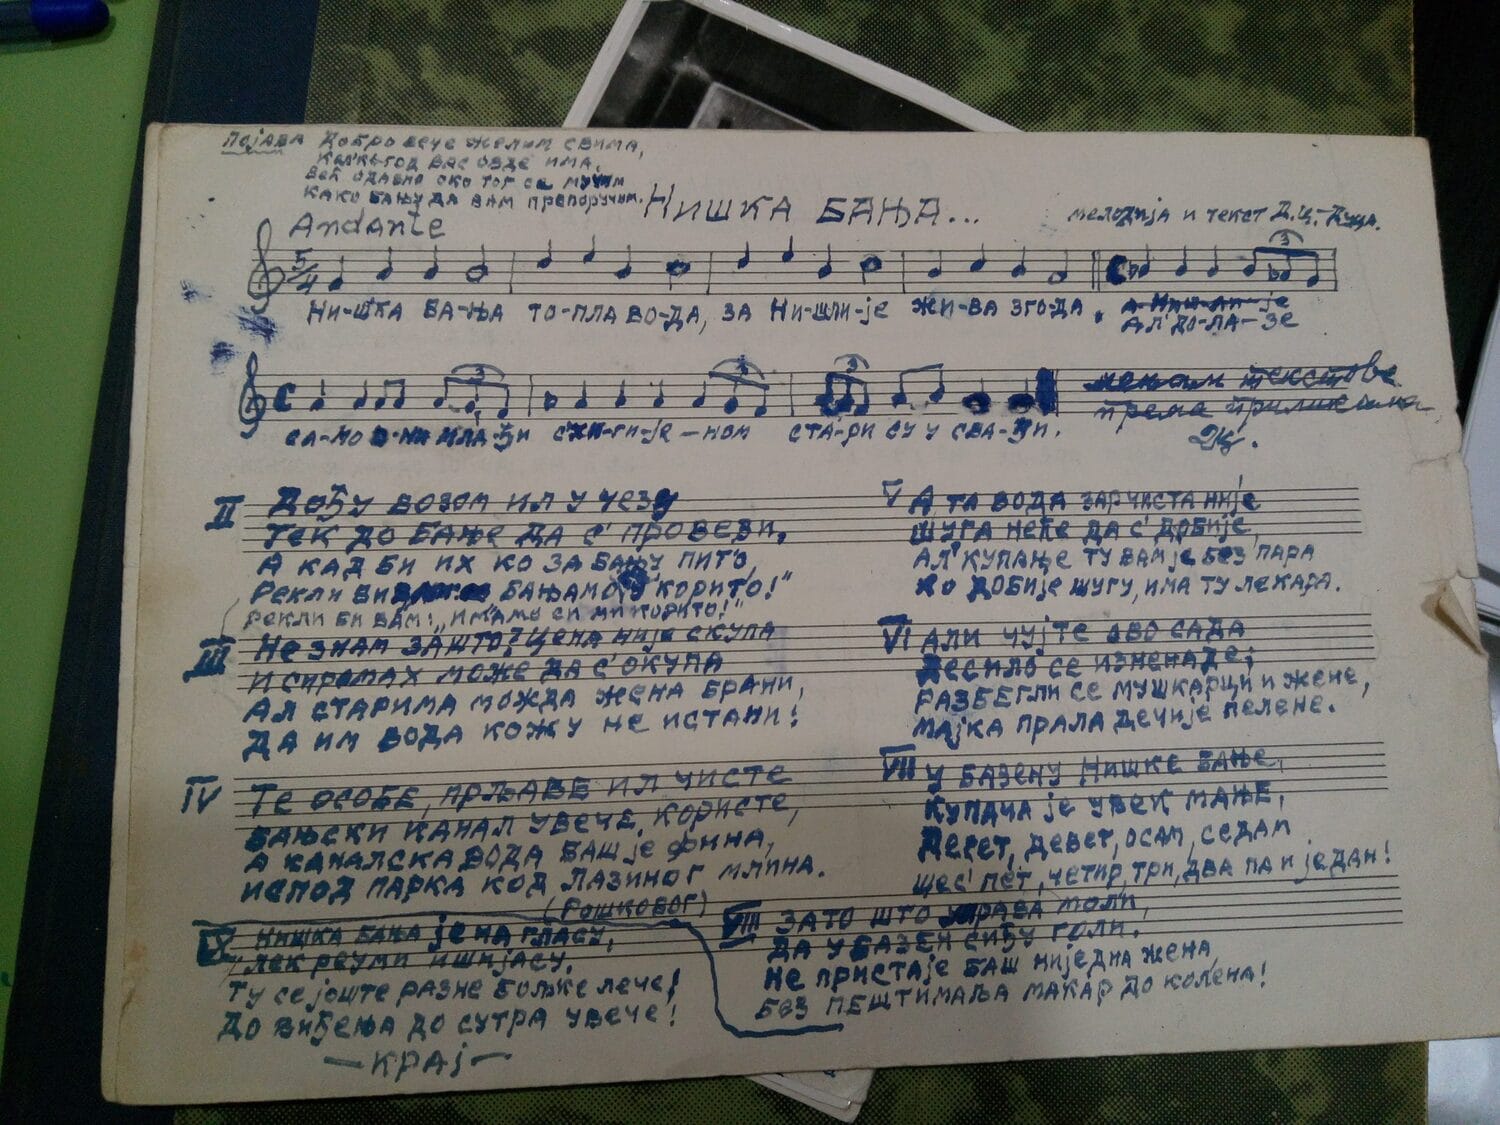 Појава Добро вече желим свима,
кол'ко год вас овде има,
већ одавно око тог се мучим
како бању да вам препоручим.
Нишка Бања...
мелодија и текст Д.Ц.-Дуца.
Andante
5/4
Ни-шка Ба-ња то-пла во-да, за Ни-шли-је жи-ва згода.
а Ниш-ли-је
Ал' до-ла-зе
3
са-мо мла-ђи с хи-ги-је-ном ста-ри су у сва-ђи.
3 3 3
мењам текстове
према приликама
ДЦ.
II Дођу возом ил у чезу
Тек до Бање да с' провезу,
А кад би их ко за бању пито,
Рекли би Бањамо "корито!"
Рекли би вам: "имамо си ми корито!"
III Не знам зашто? Цена није скупа
И сиромах може да с' окупа
Ал старима можда жена брани,
Да им вода кожу не истани!
IV Те особе, прљаве ил чисте
Бањски канал увече, користе,
А каналска вода баш је фина,
Испод парка код Лазиног млина.
(Рошковог)
V А та вода зар чиста није
Шуга неће да с' добије,
Ал' купање ту вам је без пара
Ко добије шугу, има ту лекара.
VI Али чујте ово сада
Десило се изненаде;
Разбегли се мушкарци и жене,
Мајка прала дечије пелене.
VII У базену Нишке Бање,
Купача је увек мање,
Десет, девет, осам, седам
шес' пет, четир, три, два па и један!
VIII Зато што управа моли,
Да у базен сиђу голи.
Не пристаје баш ниједна жена,
Без пештимаља макар до колена!
IX Нишка Бања је на гласу,
Лек реуми и шијасу.
Ту се јоште разне бољке лече!
До виђења до сутра увече!
—Крај—